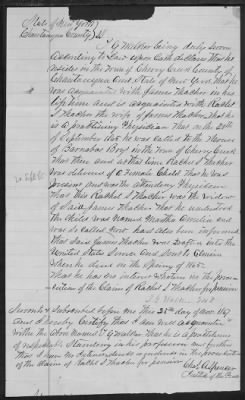 State of New York }
Chautauqua County } SS
being duly sworn
According to Law upon Oath declares that he
resides in the Town of Cherry Creek County of
Chautauqua and State of New York, that he
was acquainted with James Thacher in his
life time and is acquainted with Rachel
S Thacher the wife of James Thacher, that he is
a practicing Physician that on the 28th
of September 1865 he was called to the House
of Barnabas in the Town of Cherry Creek
that then and at that time Rachel S Thacher
was delivered of a Female Child that he was
present and was the attending Physician
that this Rachel S Thacher was the widow
of said James Thacher that he understood
the child was named Martha Emelia and
was so called and has also been informed
that said James Thacher was drafted into the
United States Service and sent to
where he died in the Spring of 1865
that he has no interest in the prosecution
of the claim of Rachel S Thacher for pension
M D
Sworn to & Subscribed before me this 25th day of Nov 1867
and I hereby Certify that I am well acquainted
with the above named that he is a practitioner
of respectable standing in his profession and further
that I have no interest direct or indirect in the prosecution
of the claim of Rachel S Thacher for pension
Chas A Spencer
Justice of the Peace